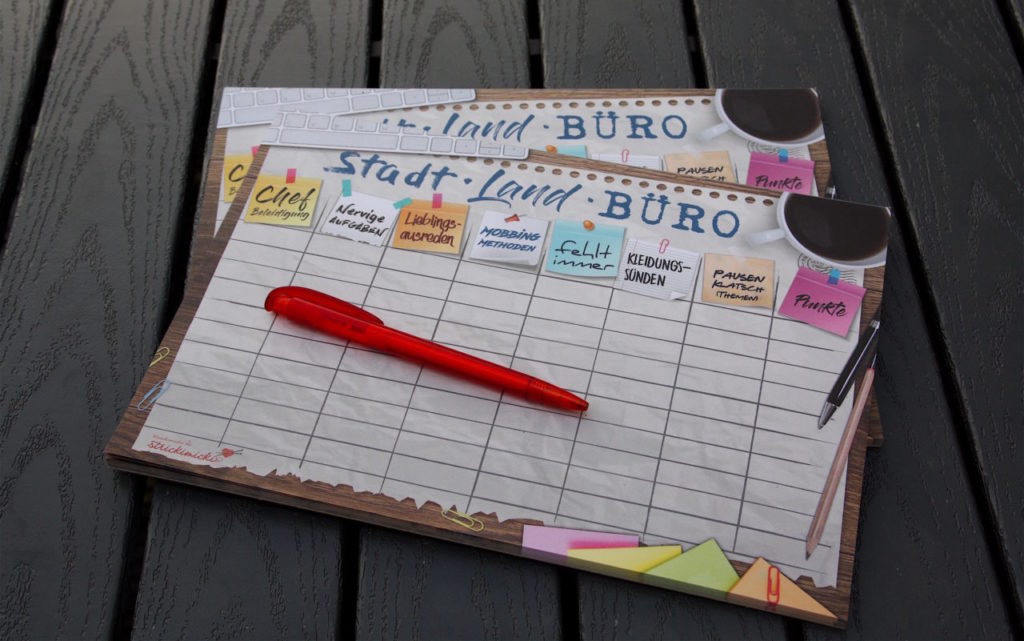 Land · BÜRO
PAUSEN
KLATSCH
Punkte
Stadt · Land · BÜRO
Chef
Beleidigung
Nervige
AUFGABEN
LieBLiNgs-
ausreden
MOBBING
METHODEN
fehlt
immer
KLEIDUNGS-
SÜNDEN
PAUSEN
KLATSCH
(THEMEN)
Punkte
strickimicki